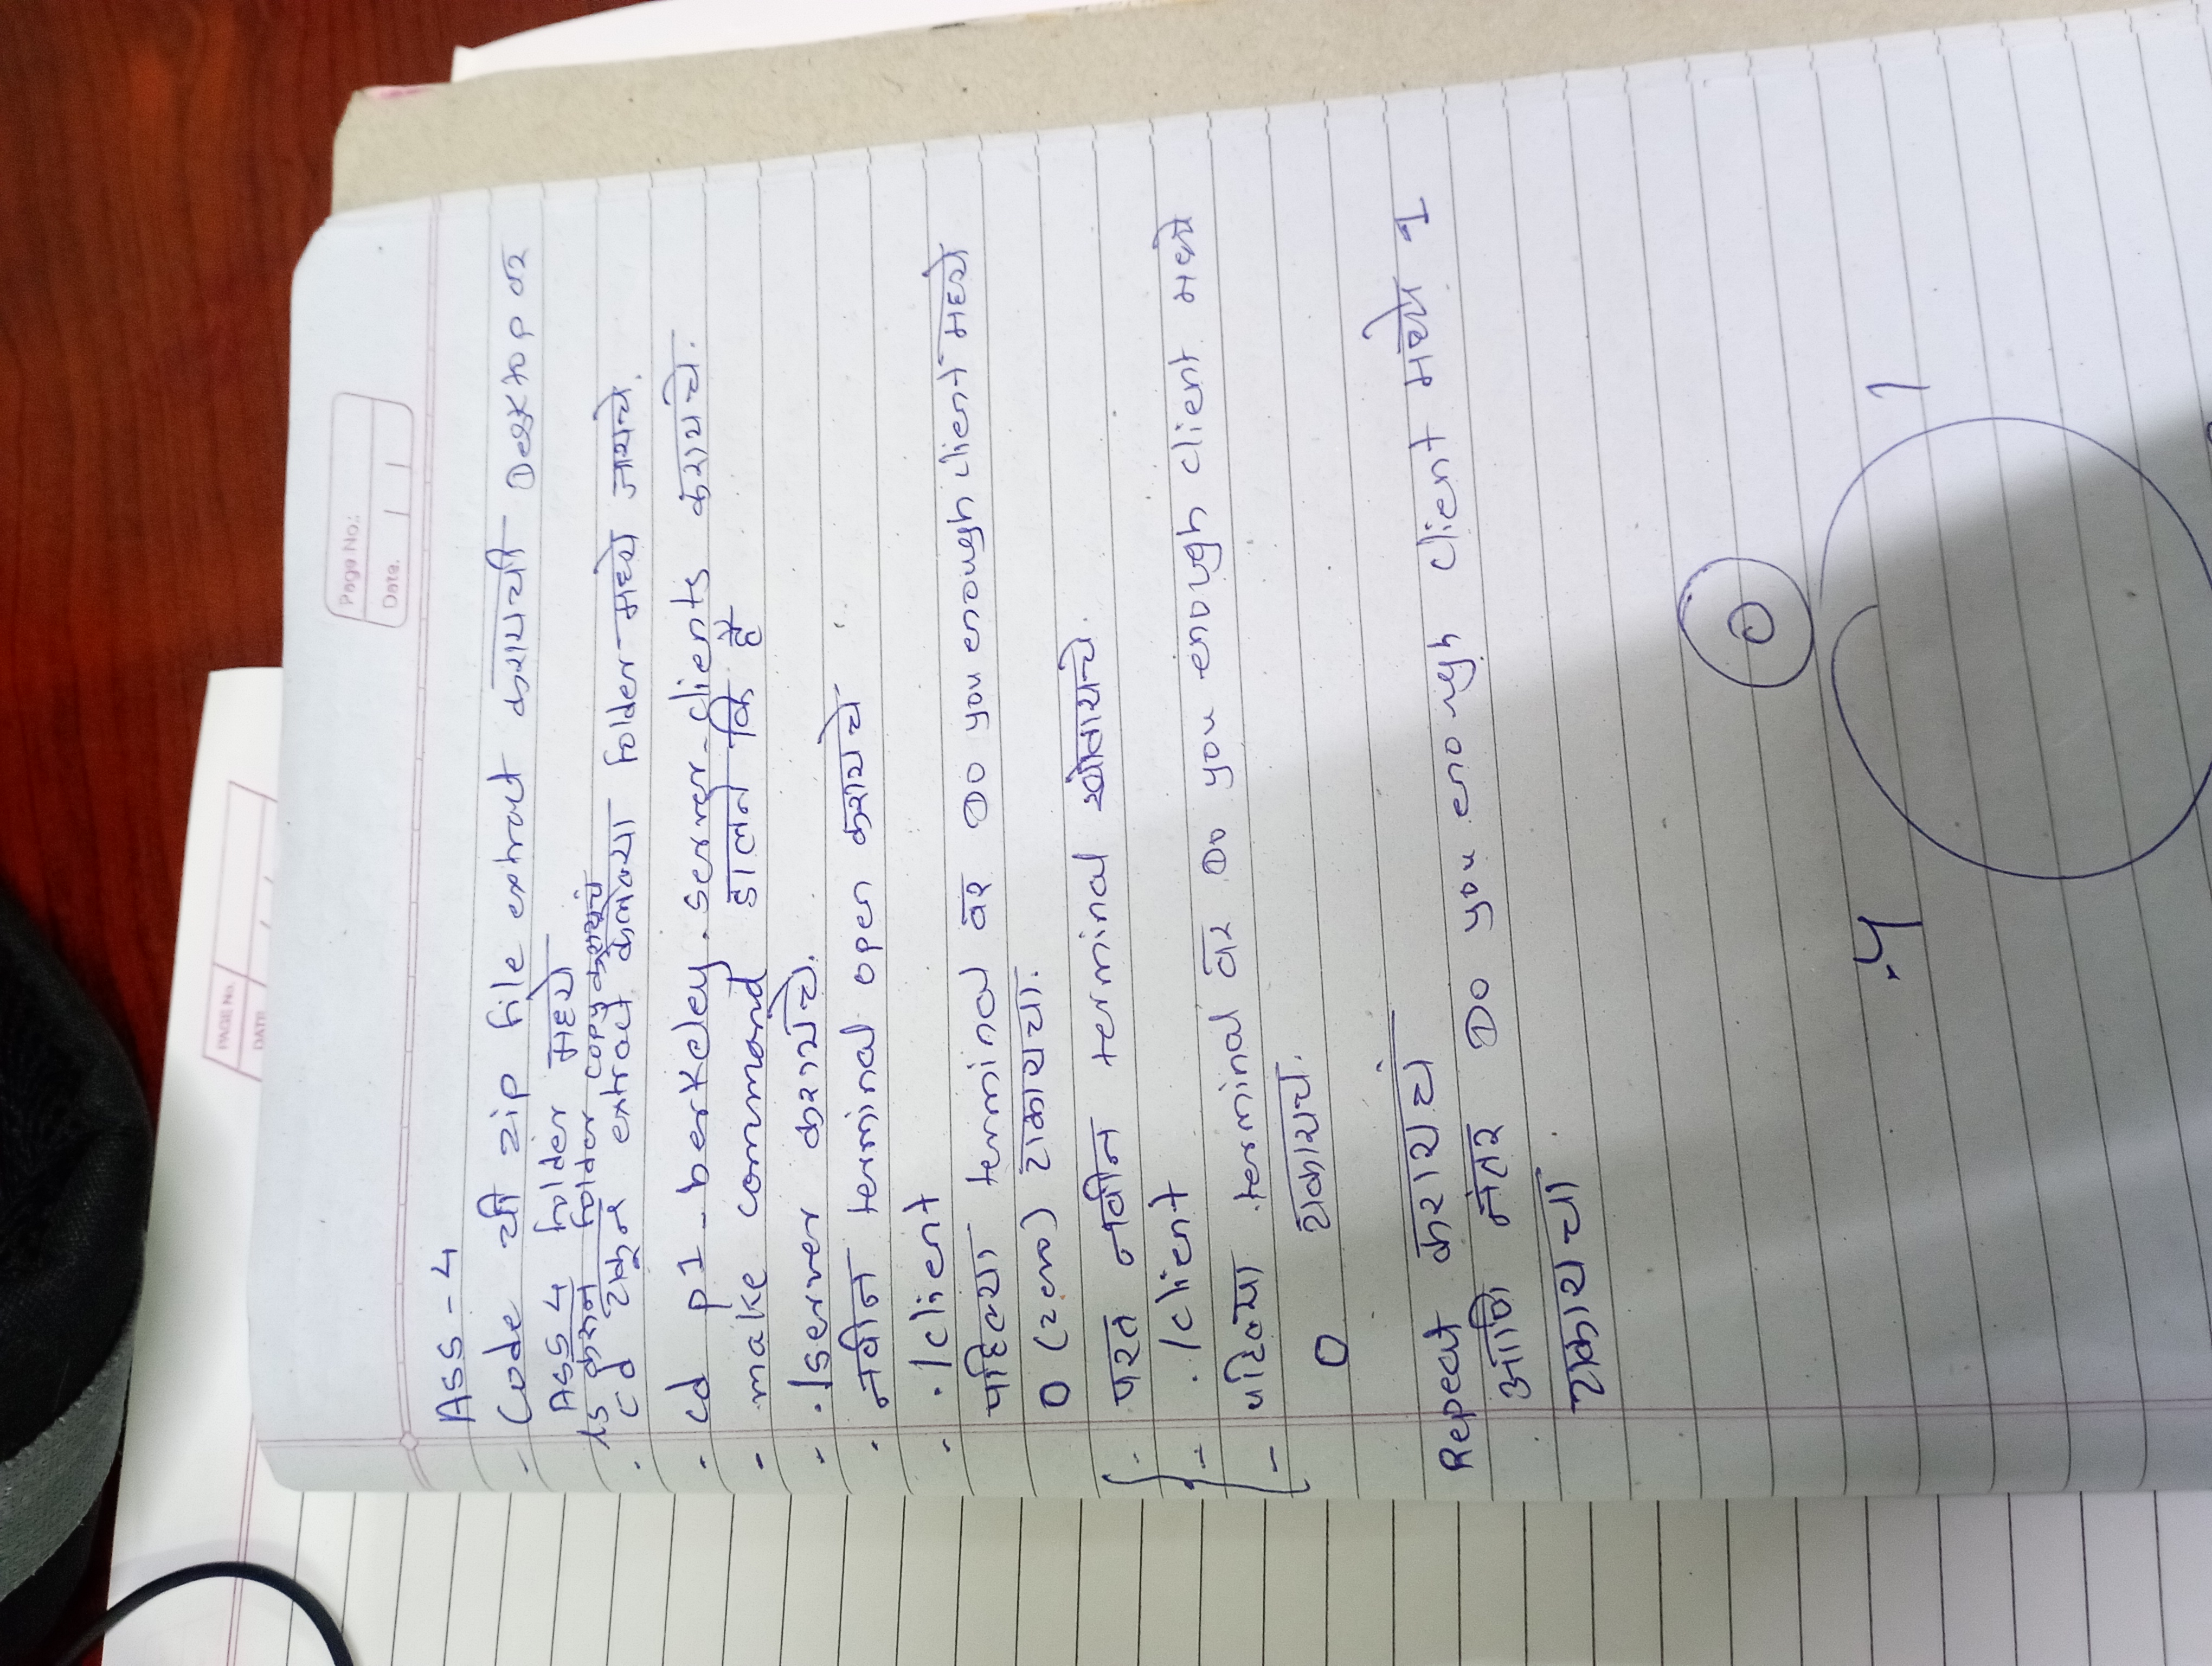 PAGE No.
DATE / /
Page No.:
Date. | |
ASS - 4
- Code ची zip file extract करायची Desktop वर
ASS 4 folder मध्ये
ls करून folder copy करायचं
. cd टाकून extract केलेल्या folder मध्ये जायचे.
- cd p1-berkeley.server-clients करायचे.
- make command डालने कि है
- ./server करायचे.
. नवीन terminal open करायचे
- ./client
पहिल्या terminal वर Do you enough client मध्ये
0 (zero) टाकायचा.
- परत नवीन terminal खोलायचे.
- ./client
- पहिल्या terminal वर Do you enough client मध्ये
0 टाकायचे.
Repeat करायचे
. आणि नंतर Do you enough client मध्ये 1
टाकायचा .
0
4 1